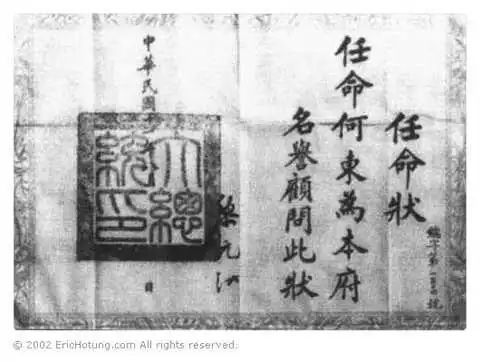 任命狀
任命何東為本府
名譽顧問此狀
大總統印
黎元洪
中華民國
© 2002 EricHotung.com All rights reserved.